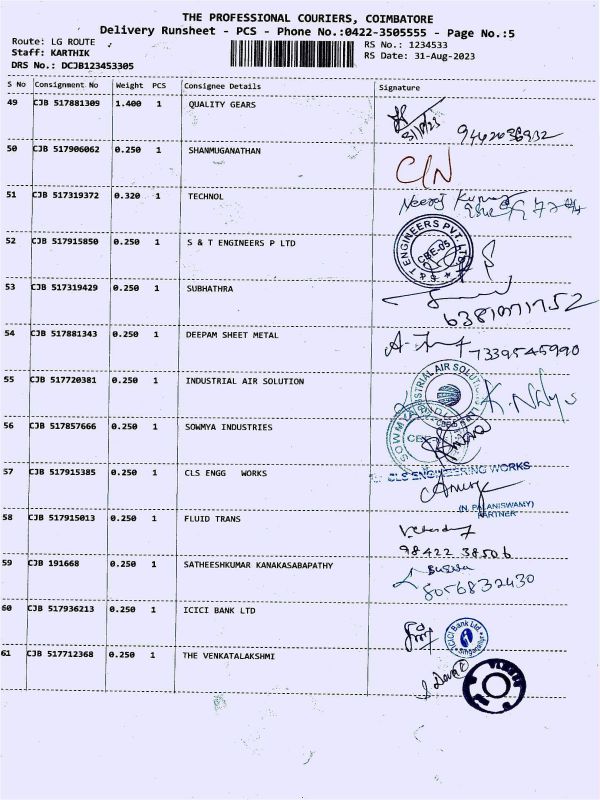 THE PROFESSIONAL COURIERS, COIMBATORE
Delivery Runsheet - PCS - Phone No.:0422-3505555 - Page No.:5
Route: LG ROUTE RS No.: 1234533
Staff: KARTHIK RS Date: 31-Aug-2023
DRS No.: DCJB123453305
S No Consignment No Weight PCS Consignee Details Signature
49 CJB 517881309 1.400 1 QUALITY GEARS
31/8/23
50 CJB 517906062 0.250 1 SHANMUGANATHAN
C/N
51 CJB 517319372 0.320 1 TECHNOL
Neeraj Kumar
52 CJB 517915850 0.250 1 S & T ENGINEERS P LTD
T ENGINEERS PVT. LTD
CBE-05
53 CJB 517319429 0.250 1 SUBHATHRA
54 CJB 517881343 0.250 1 DEEPAM SHEET METAL
7339545990
55 CJB 517720381 0.250 1 INDUSTRIAL AIR SOLUTION
INDUSTRIAL AIR SOLUTIONS
56 CJB 517857666 0.250 1 SOWMYA INDUSTRIES
SOWMYA
57 CJB 517915385 0.250 1 CLS ENGG WORKS
CLS ENGINEERING WORKS
(N. PALANISWAMY)
PARTNER
58 CJB 517915013 0.250 1 FLUID TRANS
98422 38506
59 CJB 191668 0.250 1 SATHEESHKUMAR KANAKASABAPATHY
8056832430
60 CJB 517936213 0.250 1 ICICI BANK LTD
ICICI Bank Ltd.
61 CJB 517712368 0.250 1 THE VENKATALAKSHMI